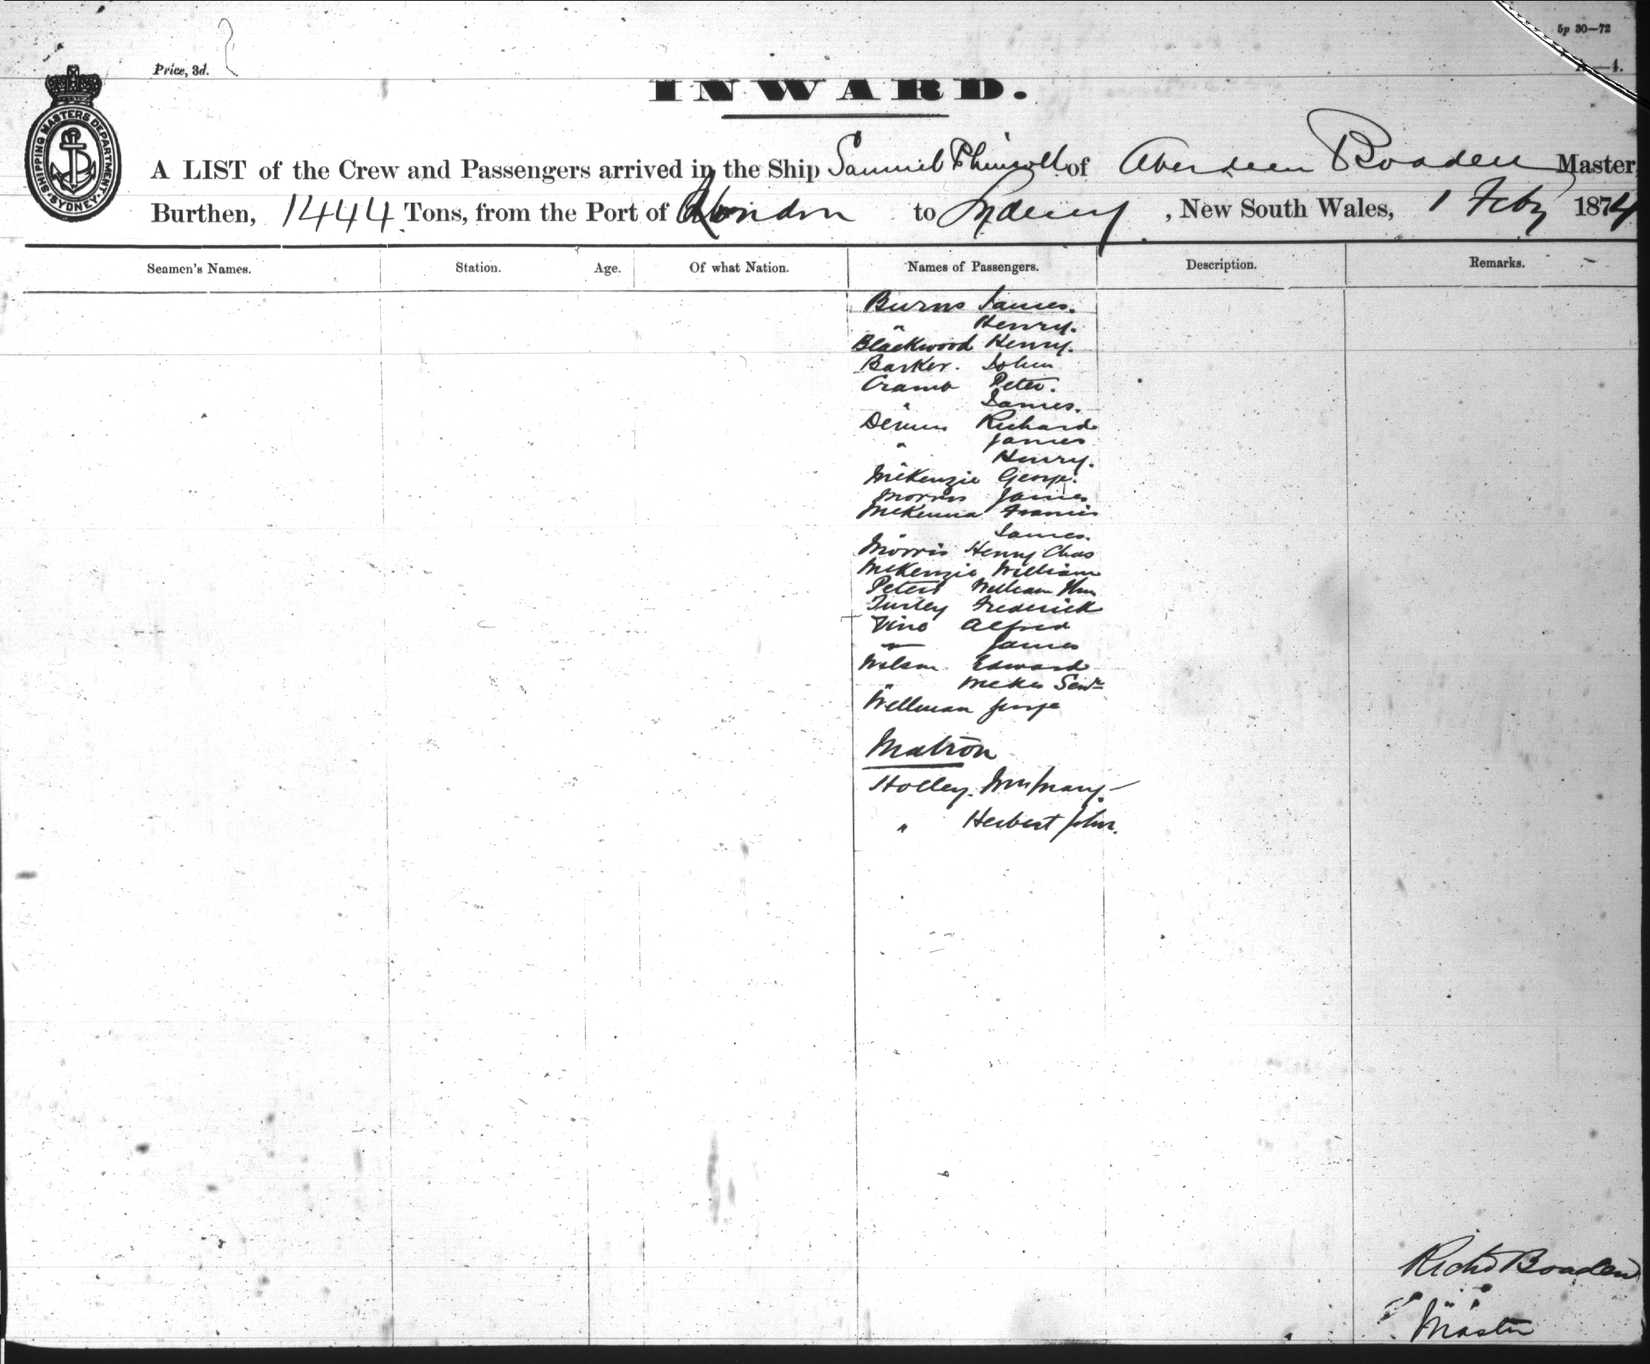 5p 30—72
Price, 3d.
A—4.
INWARD.
SHIPPING MASTERS DEPARTMENT
SYDNEY
A LIST of the Crew and Passengers arrived in the Ship Samuel Plimsoll of Aberdeen Boaden Master,
Burthen, 1444 Tons, from the Port of London to Sydney, New South Wales, 1 Feby 1874
Seamen's Names. Station. Age. Of what Nation. Names of Passengers. Description. Remarks.
Burns James.
" Henry.
Blackwood Henry.
Barker. John
Cramb Peter.
" James.
Richard
" James
Henry.
McKenzie George.
Morris James
McKenna Francis
" James.
Morris Henry Chas
McKenzie William
Peters William
Turley Frederick
Vine Alfred
— James
Wilson Edward
"
Wellman George
Matron
Holley. Mary
" Herbert John.
Richd Boaden
Master